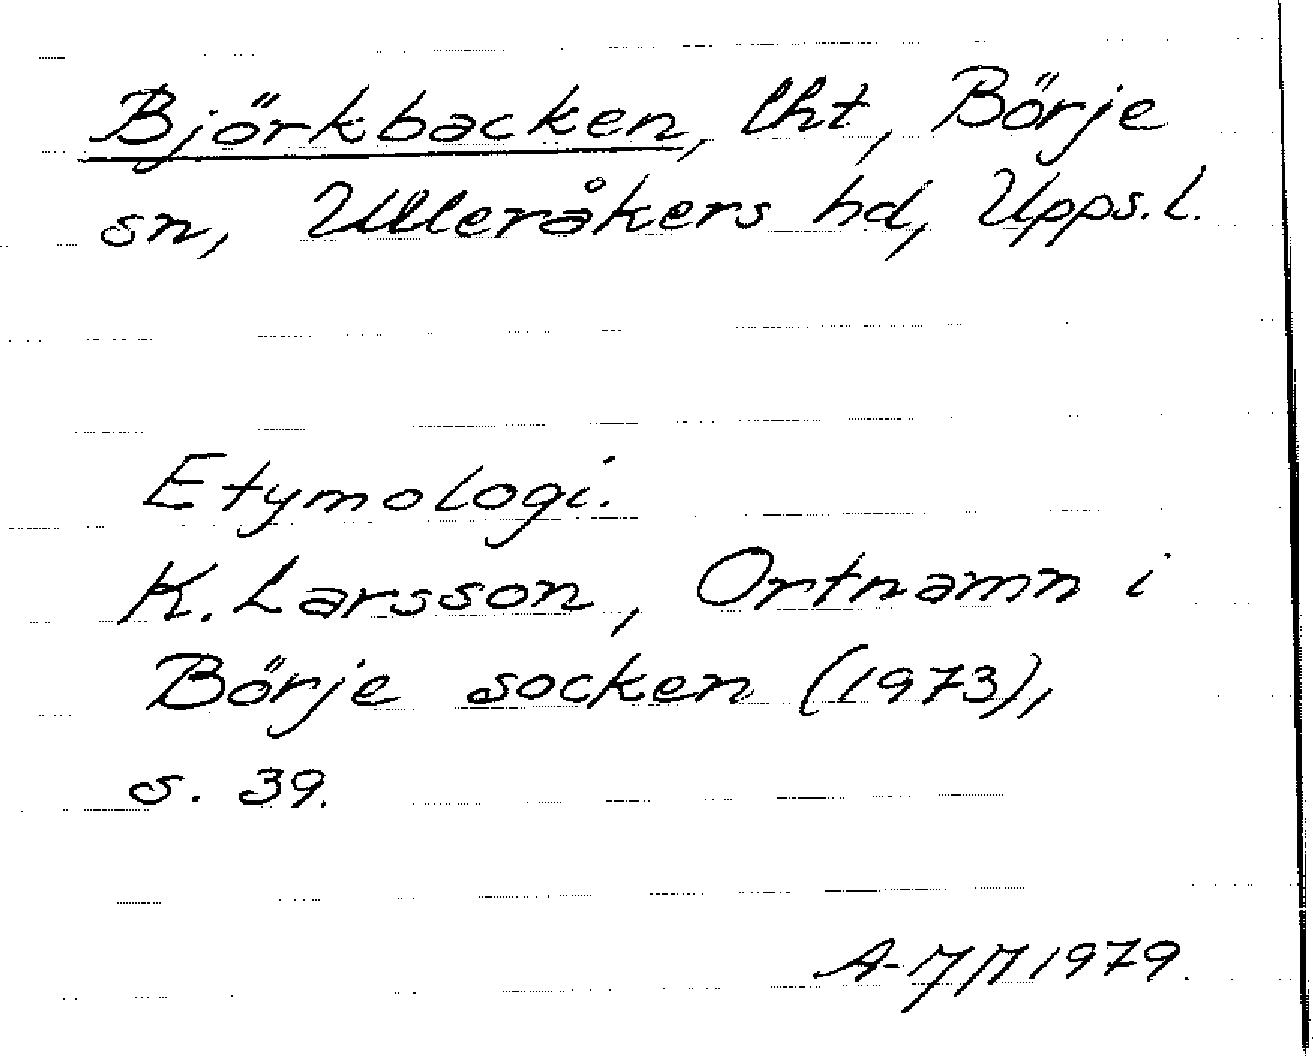 Björkbacken, lht, Börje
sn, Ulleråkers hd, Upps. l.
Etymologi.
K. Larsson, Ortnamn i
Börje socken (1973),
s. 39.
1979.